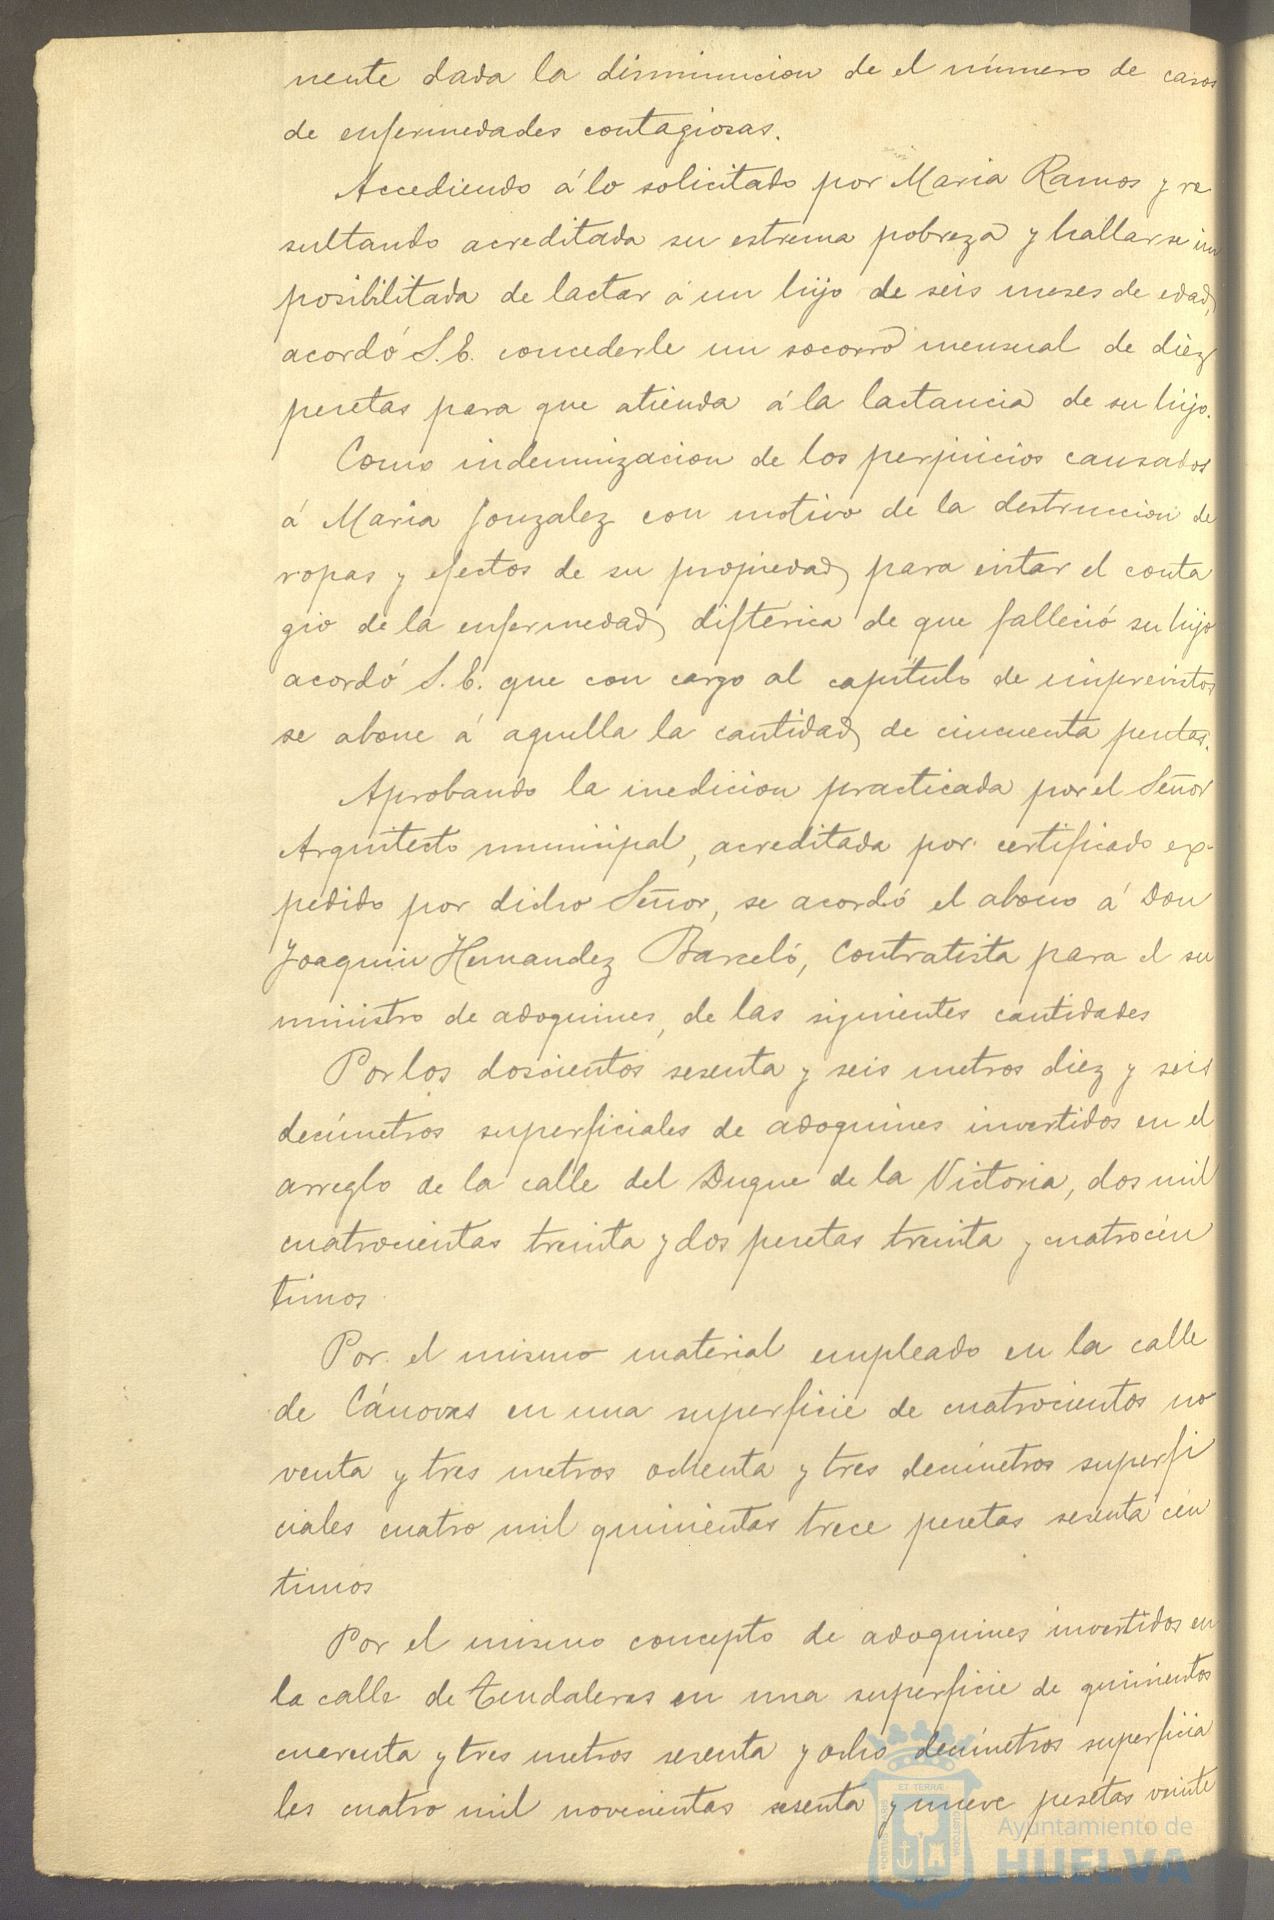 nente dada la disminucion de el número de casos
de enfermedades contagiosas.
Accediendo á lo solicitado por Maria Ramos y re
sultando acreditada su estrema pobreza y hallarse im
posibilitada de lactar á un hijo de seis meses de edad,
acordó S. E. concederle un socorro mensual de diez
pesetas para que atienda á la lactancia de su hijo.
Como indemnizacion de los perjuicios causados
á Maria Gonzalez con motivo de la destruccion de
ropas y efectos de su propiedad, para evitar el conta
gio de la enfermedad, diftérica de que falleció su hijo
acordó S. E. que con cargo al capítulo de imprevistos
se abone á aquella la cantidad, de cincuenta pesetas.
Aprobando la medicion practicada por el Señor
Arquitecto municipal, acreditada por certificado ex-
pedido por dicho Señor, se acordó el abono á Don
Joaquin Hernandez Barceló, Contratista para el su
ministro de adoquines, de las siguientes cantidades
Por los doscientos sesenta y seis metros diez y seis
decímetros superficiales de adoquines invertidos en el
arreglo de la calle del Duque de la Victoria, dos mil
cuatrocientas treinta y dos pesetas treinta y cuatro cén
timos.
Por el mismo material empleado en la calle
de Cánovas en una superficie de cuatrocientos no
venta y tres metros ochenta y tres decímetros superfi
ciales cuatro mil quinientas trece pesetas sesenta cén
timos
Por el mismo concepto de adoquines invertidos en
la calle de Tendaleras en una superficie de quinientos
cuarenta y tres metros sesenta y ocho decímetros superficia
les cuatro mil novecientas sesenta y nueve pesetas veinte
Ayuntamiento de
HUELVA